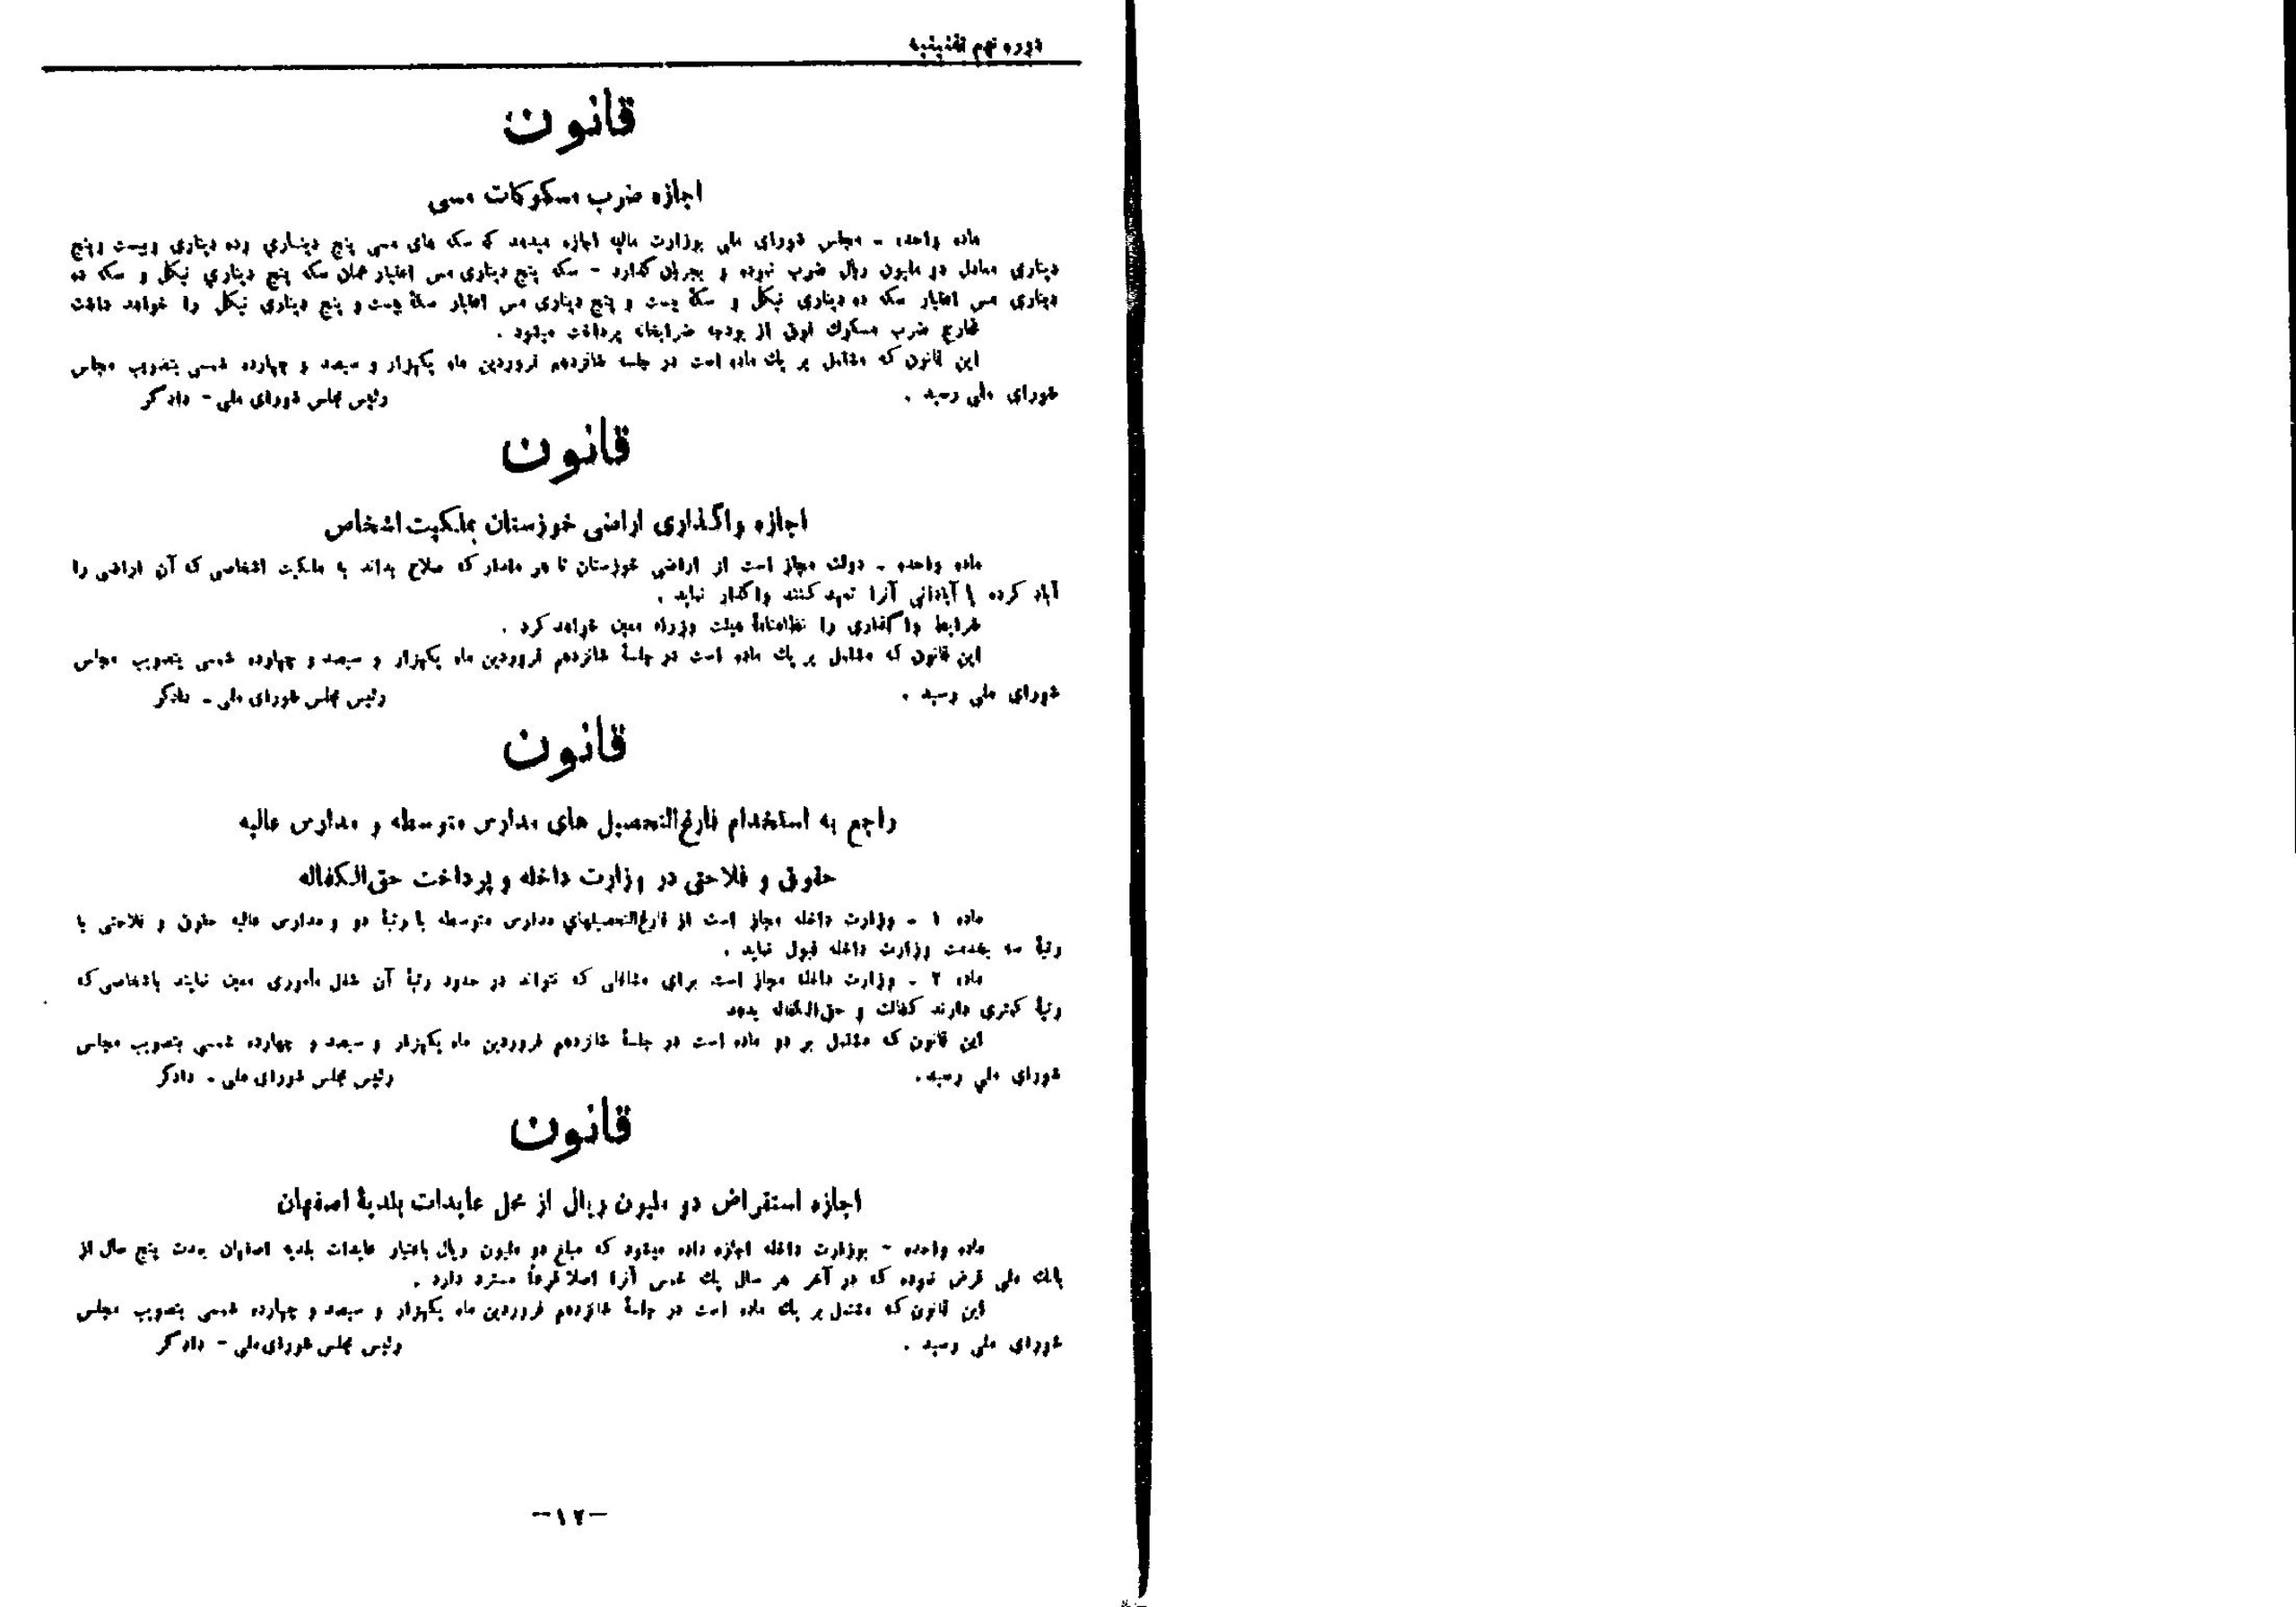 دوره نهم تقنینیه
قانون
اجازه ضرب مسکوکات مسی
ماده واحده - مجلس شورای ملی بوزارت مالیه اجازه میدهد که سکه های مسی پنج دیناری وده دیناری وبیست وپنج
دیناری معادل دو ملیون ریال ضرب نموده و بجریان گذارد - سکه پنج دیناری مس اعتبار همان سکه پنج دیناری نیکل و سکه ده
دیناری مس اعتبار سکه ده دیناری نیکل و سکهٔ بیست و پنج دیناری مس اعتبار سکهٔ بیست و پنج دیناری نیکل را خواهد داشت
مخارج ضرب مسکوک فوق از بودجه ضرابخانه پرداخت میشود .
این قانون که مشتمل بر یک ماده است در جلسه شانزدهم فروردین ماه یکهزار و سیصد و چهارده شمسی بتصویب مجلس
شورای ملی رسید . رئیس مجلس شورای ملی - دادگر
قانون
اجازه واگذاری اراضی خوزستان بملکیت اشخاص
ماده واحده - دولت مجاز است از اراضی خوزستان تا هر مقدار که صلاح بداند به ملکیت اشخاصی که آن اراضی را
آباد کرده یا آبادانی آنرا تعهد کنند واگذار نماید .
شرایط واگذاری را نظامنامهٔ هیئت وزراء معین خواهد کرد .
این قانون که مشتمل بر یک ماده است در جلسهٔ شانزدهم فروردین ماه یکهزار و سیصد و چهارده شمسی بتصویب مجلس
شورای ملی رسید . رئیس مجلس شورای ملی - دادگر
قانون
راجع به استخدام فارغ‌التحصیل های مدارس متوسطه و مدارس عالیه
حقوقی و فلاحتی در وزارت داخله و پرداخت حق‌الکفاله
ماده ۱ - وزارت داخله مجاز است از فارغ‌التحصیلهای مدارس متوسطه با رتبهٔ دو و مدارس عالیه حقوق و فلاحتی با
رتبهٔ سه بخدمت وزارت داخله قبول نماید .
ماده ۲ - وزارت داخله مجاز است برای مشاغلی که نتواند در حدود رتبهٔ آن شغل مأموری معین نمایند باشخاصی که
رتبهٔ کمتری دارند کفالت و حق‌الکفاله بدهد
این قانون که مشتمل بر دو ماده است در جلسهٔ شانزدهم فروردین ماه یکهزار و سیصد و چهارده شمسی بتصویب مجلس
شورای ملی رسید . رئیس مجلس شورای ملی - دادگر
قانون
اجازه استقراض دو ملیون ریال از محل عایدات بلدیهٔ اصفهان
ماده واحده - بوزارت داخله اجازه داده میشود که مبلغ دو ملیون ریال باعتبار عایدات بلدیه اصفهان بمدت پنج سال از
بانک ملی قرض نموده که در آخر هر سال یک خمس آنرا اصلا فرعاً مسترد دارد .
این قانون که مشتمل بر یک ماده است در جلسهٔ شانزدهم فروردین ماه یکهزار و سیصد و چهارده شمسی بتصویب مجلس
شورای ملی رسید . رئیس مجلس شورای ملی - دادگر
-۱۲-